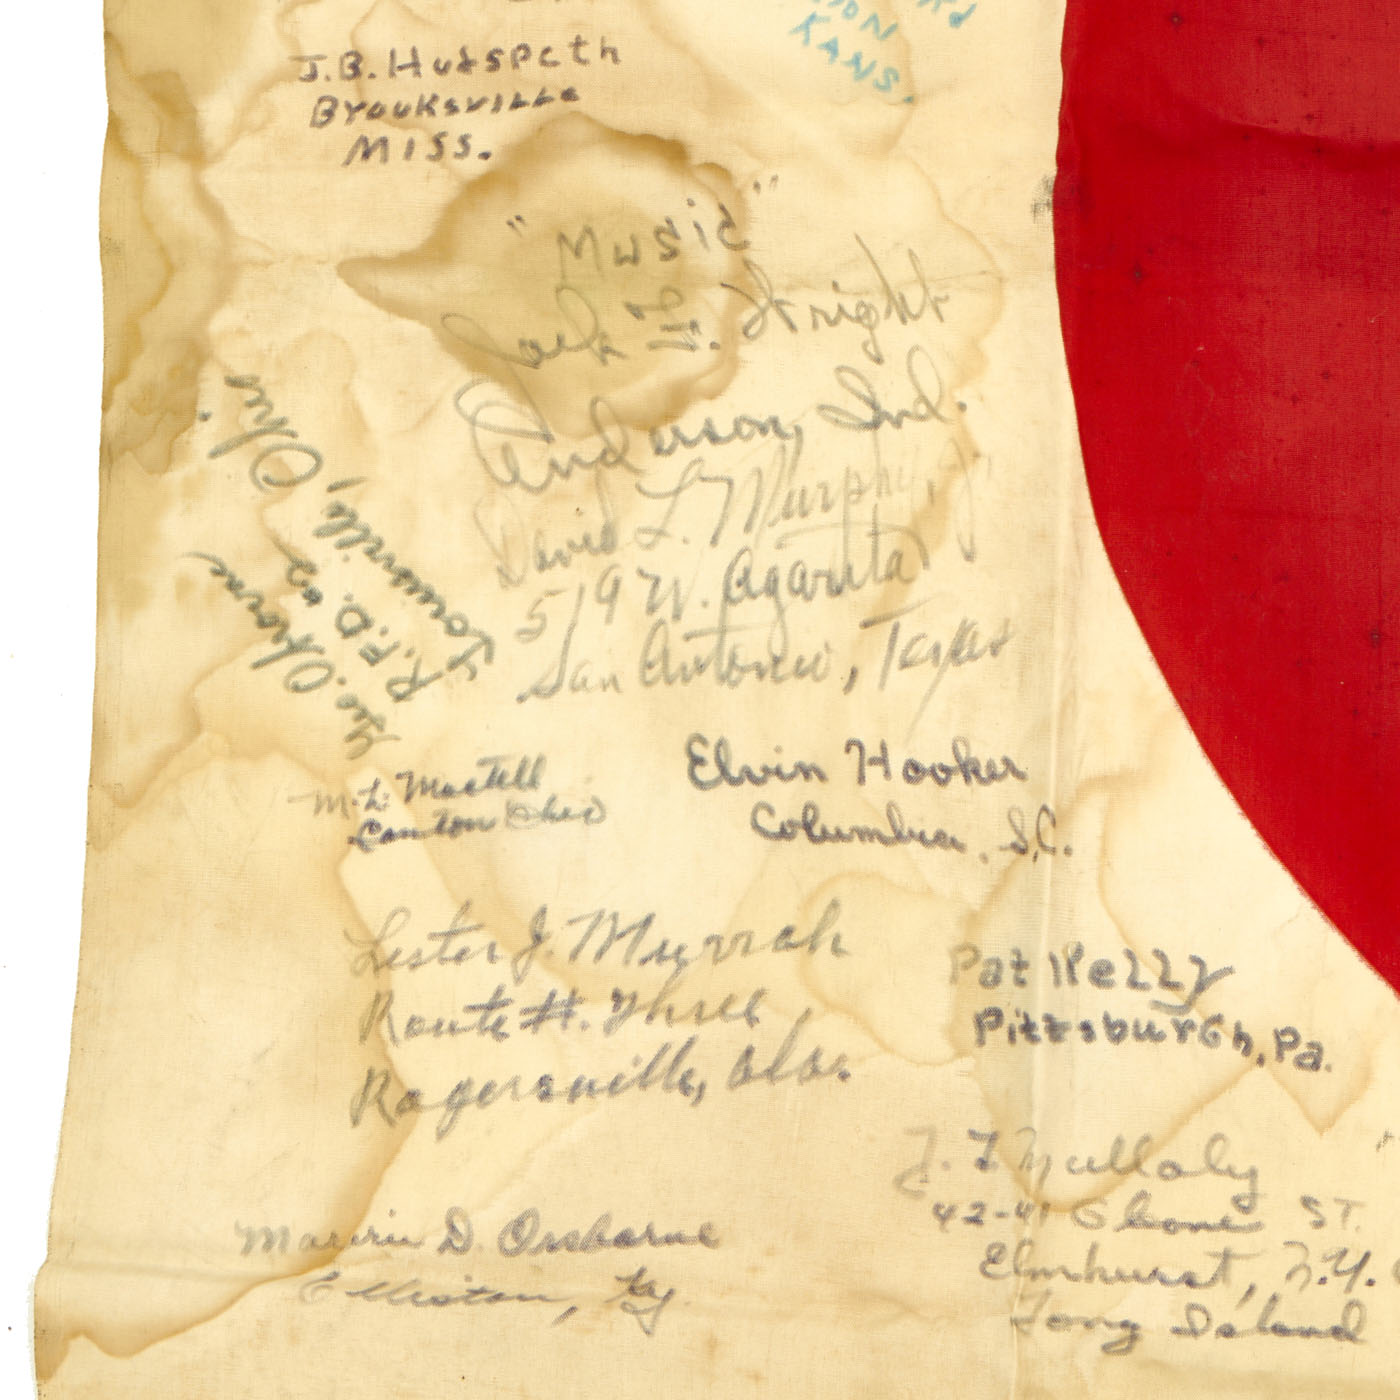 KANS.
J.B. Hudspeth
Brooksville
Miss.
"Music"
Jack L. Wright
Anderson, Ind.
David L. Murphy, Jr.
519 W. Agarita
San Antonio, Texas
Geo. Osborne
R.F.D. #2
Ohio
M.L.
Canton Ohio
Elvin Hooker
Columbia, S.C.
Lester J. Murrah
Route #. Three,
Rogersville, Ala.
Pat Kelly
Pittsburgh, Pa.
J. F. Mullaly
42-41 ST.
Elmhurst, N.Y.
Long Island
D. Osborne
Elliston, Ky.